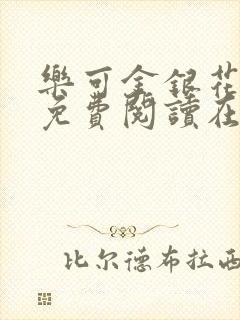 樂可金銀花
免費閱讀在
比尔德布拉西